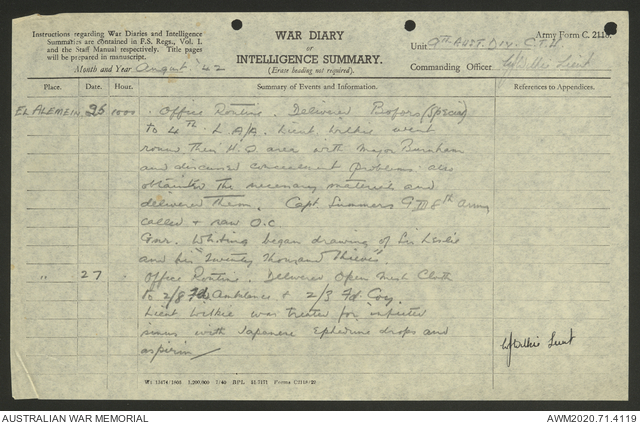 Instructions regarding War Diaries and Intelligence
Summaries are contained in F.S. Regs., Vol. I.
and the Staff Manual respectively. Title pages
will be prepared in manuscript.
Month and Year August '42
WAR DIARY
or
INTELLIGENCE SUMMARY.
(Erase heading not required).
Army Form C. 2118.
Unit 9th AUST. DIV. C.T.U
Commanding Officer Wilkie Lieut
Place. Date. Hour. Summary of Events and Information. References to Appendices.
EL ALEMEIN 26 1000 Office Routine. Delivered Bofors (Special)
to 4th L.A/A. Lieut. Wilkie went
round their H.Q area with Major Burnham
and discussed concealment problems also
obtained the necessary materials and
delivered them. Capt. Summers G III 8th Army
called & saw O.C.
Gnr. Whiting began drawing of Sir Leslie
and his "Twenty Thousand Thieves".
" 27 " Office Routine. Delivered Open Mesh Cloth
to 2/8 Fd Ambulance & 2/3 Fd. Coy.
Lieut Wilkie was treated for infected
sinus with Japanese Ephedrine drops and
aspirin
Wilkie Lieut
AUSTRALIAN WAR MEMORIAL
AWM2020.71.4119